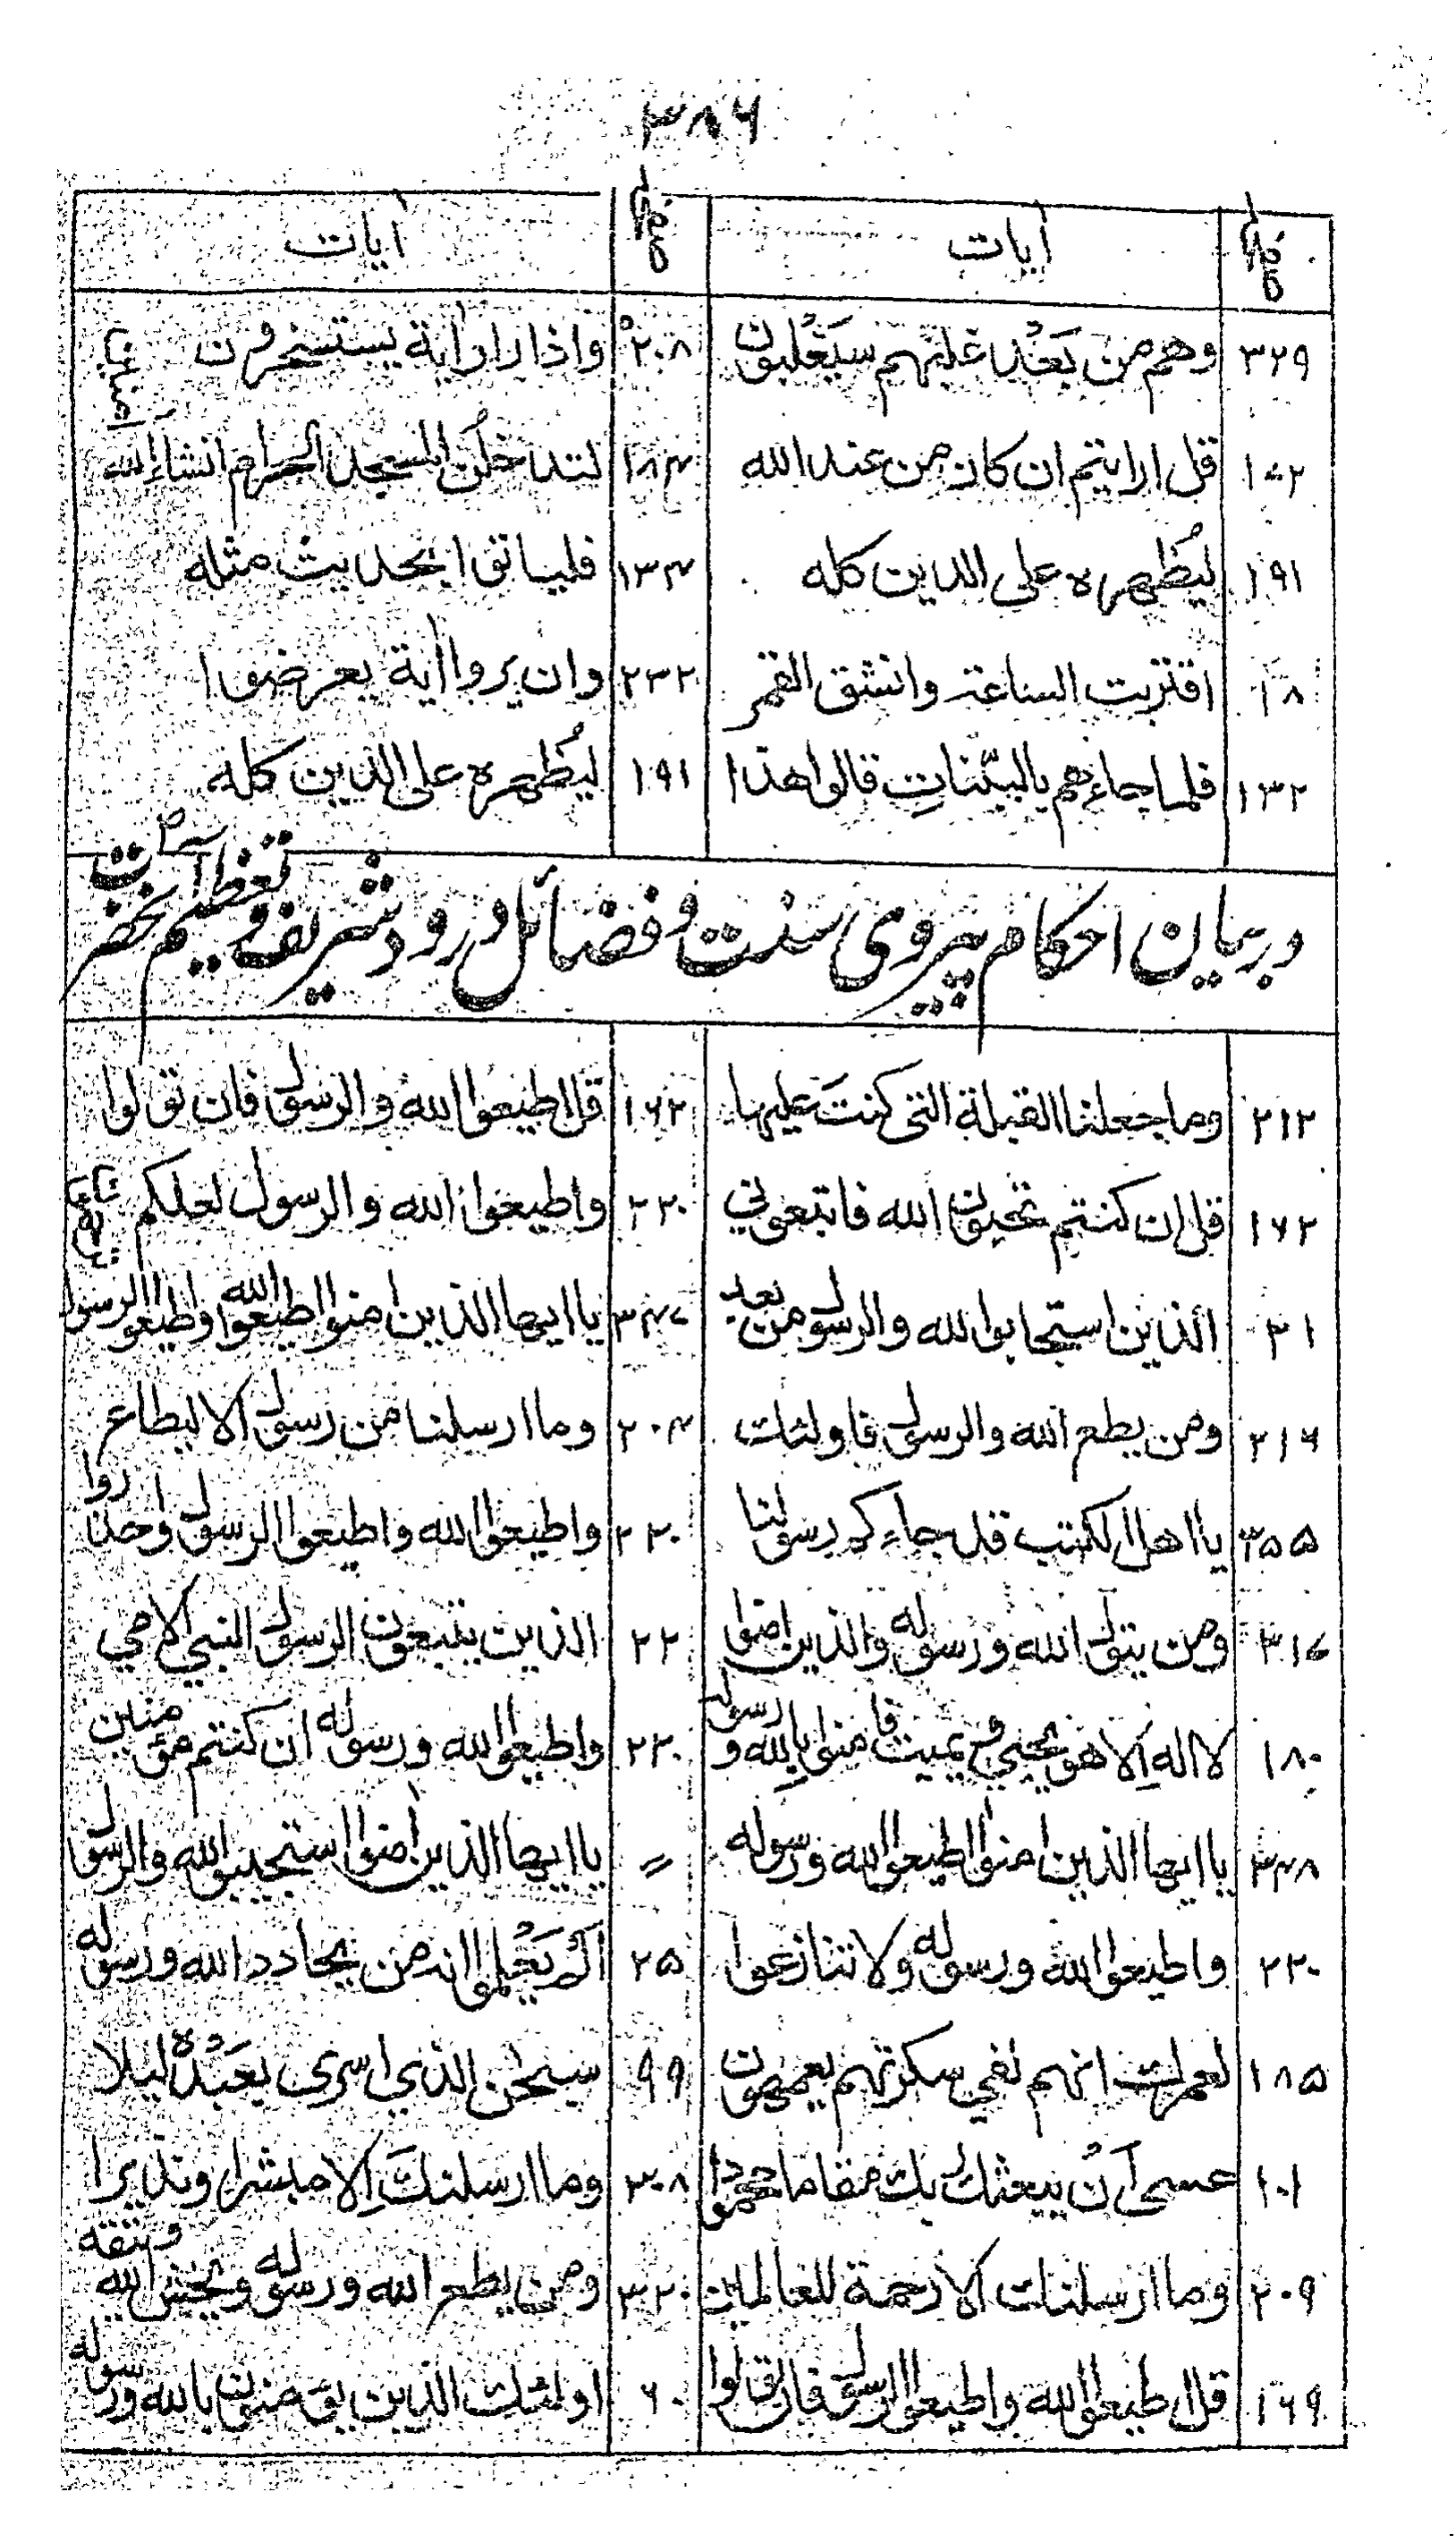 ۳۸۶
صفحہ | آیات | صفحہ | آیات
۳۲۹ | وهم من بَعْد غلبهم سيَغْلبون | ۲۰۸ | واذا راوا اية يستسخرون
۱۷۲ | قل ارايتم ان كان من عند الله | ۱۸۴ | لتدخلُن المسجد الحرام انشاءالله امنين
۱۹۱ | ليُظهره على الدين كله | ۱۳۴ | فلياتوا بحديث مثله
۱۸ | اقتربت الساعة وانشق القمر | ۲۳۲ | وان يروا اية يعرضوا
۱۳۲ | فلما جاءهم بالبيّنات قالوا هذا | ۱۹۱ | ليُظهره على الدين كله
در بیان احکام پیروی سنت و فضائل درود شریف و تعظیم آنحضرت ؐ
۲۱۲ | وما جعلنا القبلة التى كنتَ عليها | ۱۶۲ | قل اطيعوا الله والرسول فان تولوا
۱۶۲ | قل ان كنتم تحبون الله فاتبعونى | ۲۲۰ | واطيعوا الله والرسول لعلكم
۳۱ | الذين استجابوا لله والرسول من بعد | ۳۴۷ | يا ايها الذين امنوا اطيعوا الله واطيعوا الرسول
۳۱۶ | ومن يطع الله والرسول فاولئك | ۲۰۴ | وما ارسلنا من رسول الا ليطاع
۳۵۵ | يا اهل الكتب قد جاءكم رسولنا | ۲۲۰ | واطيعوا الله واطيعوا الرسول واحذروا
۳۱۷ | ومن يتول الله ورسوله والذين امنوا | ۲۲ | الذين يتبعون الرسول النبي الامي
۱۸۰ | لا اله الا هو يحيي و يميت فامنوا بالله و رسوله | ۲۲۰ | واطيعوا الله ورسوله ان كنتم مؤمنين
۳۴۸ | يا ايها الذين امنوا اطيعوا الله ورسوله | = | يا ايها الذين امنوا استجيبوا لله والرسول
۲۲۰ | واطيعوا الله ورسوله ولا تنازعوا | ۲۵ | الم يَعْلموا انه من يحادد الله ورسوله
۱۸۵ | لعمرك انهم لفي سكرتهم يعمهون | ۹۹ | سبحن الذي اسرى بعَبْدهٖ ليلا
۱۰۱ | عسى اَنْ يبعثك ربك مقاما محمودا | ۳۰۸ | وما ارسلنكَ اِلا مبشرا ونذيرا
۲۰۹ | وما ارسلناك الا رحمة للعالمين | ۳۲۰ | ومن يطع الله ورسوله ويخش الله ويتقه
۱۶۹ | قل اطيعوا الله واطيعوا الرسول فان تولوا | ۶۰ | اولئك الذين يؤمنون بالله ورسوله